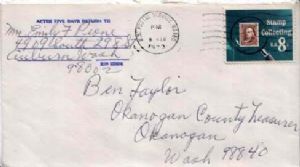 AFTER FIVE DAYS RETURN TO
Mrs Emily F Pione
Auburn Wash
98002
Stamp
Collecting
U.S. 8
Ben Taylor
Okanogan County Treasurer
Okanogan
Wash 98840